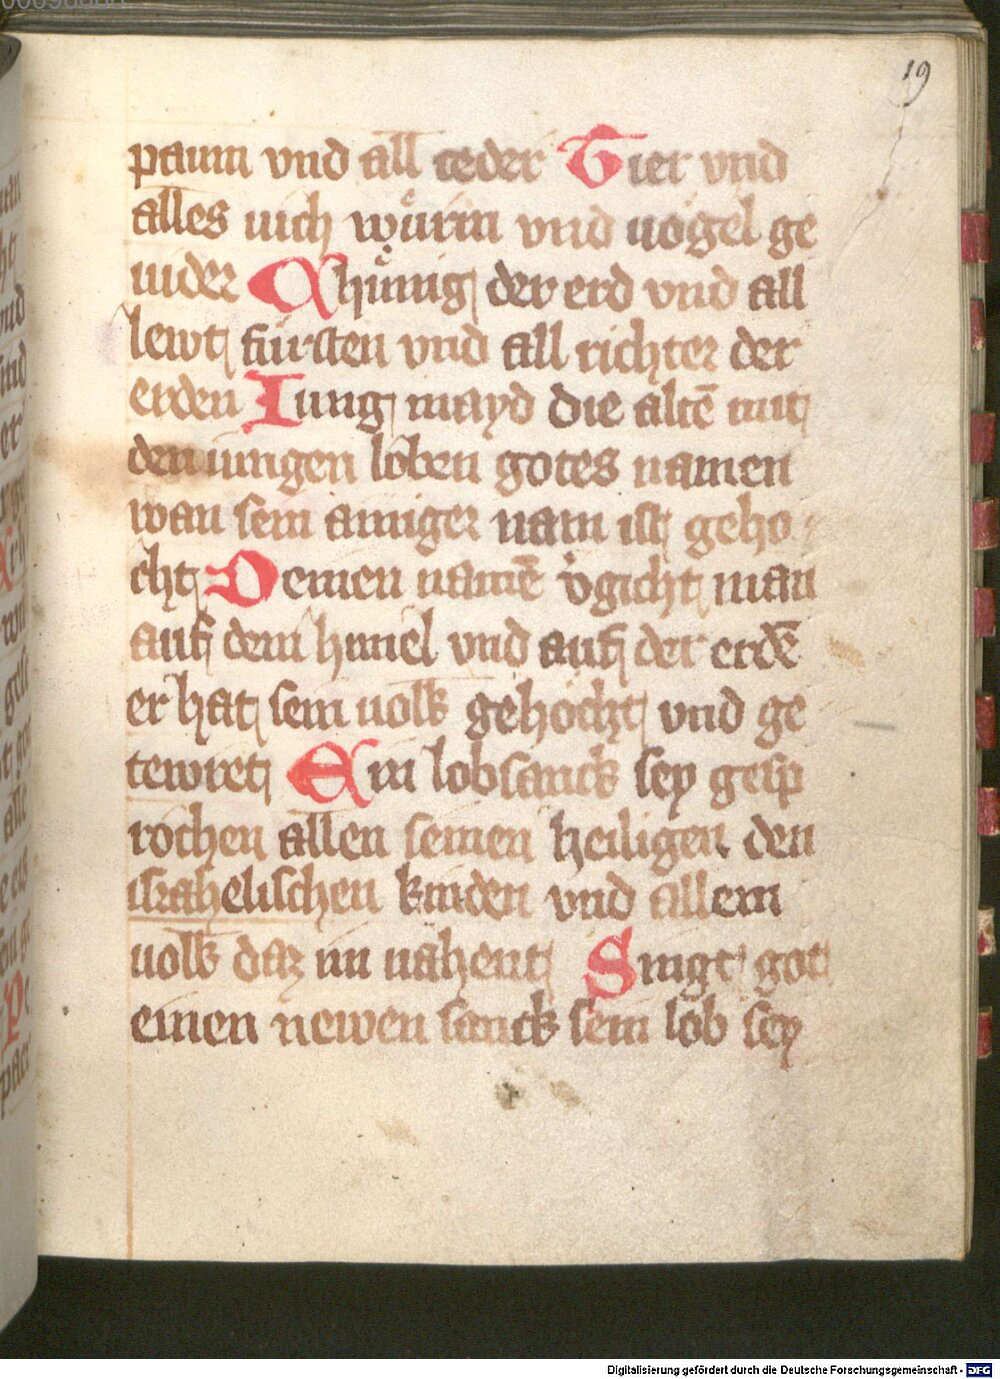 19
paum vnd all ceder Tier vnd
alles uich wůrm vnd uogel ge
uider Chůnig der erd vnd all
lewt fürsten vnd all richter der
erden Iung mayd die altē mit
den iungen loben gotes namen
wan sein ainiger nam ist geho
cht Deinen namē v̓gicht man
auf dem himel vnd auf der erdē
er hat sein uolk gehöcht vnd ge
tewret Ein lobsanck sey gesp
rochen allen seinen heiligen den
israhelischen kinden vnd allem
uolk daz im nahent Singt got
einen newen sanck sein lob sey
Digitalisierung gefördert durch die Deutsche Forschungsgemeinschaft - DFG